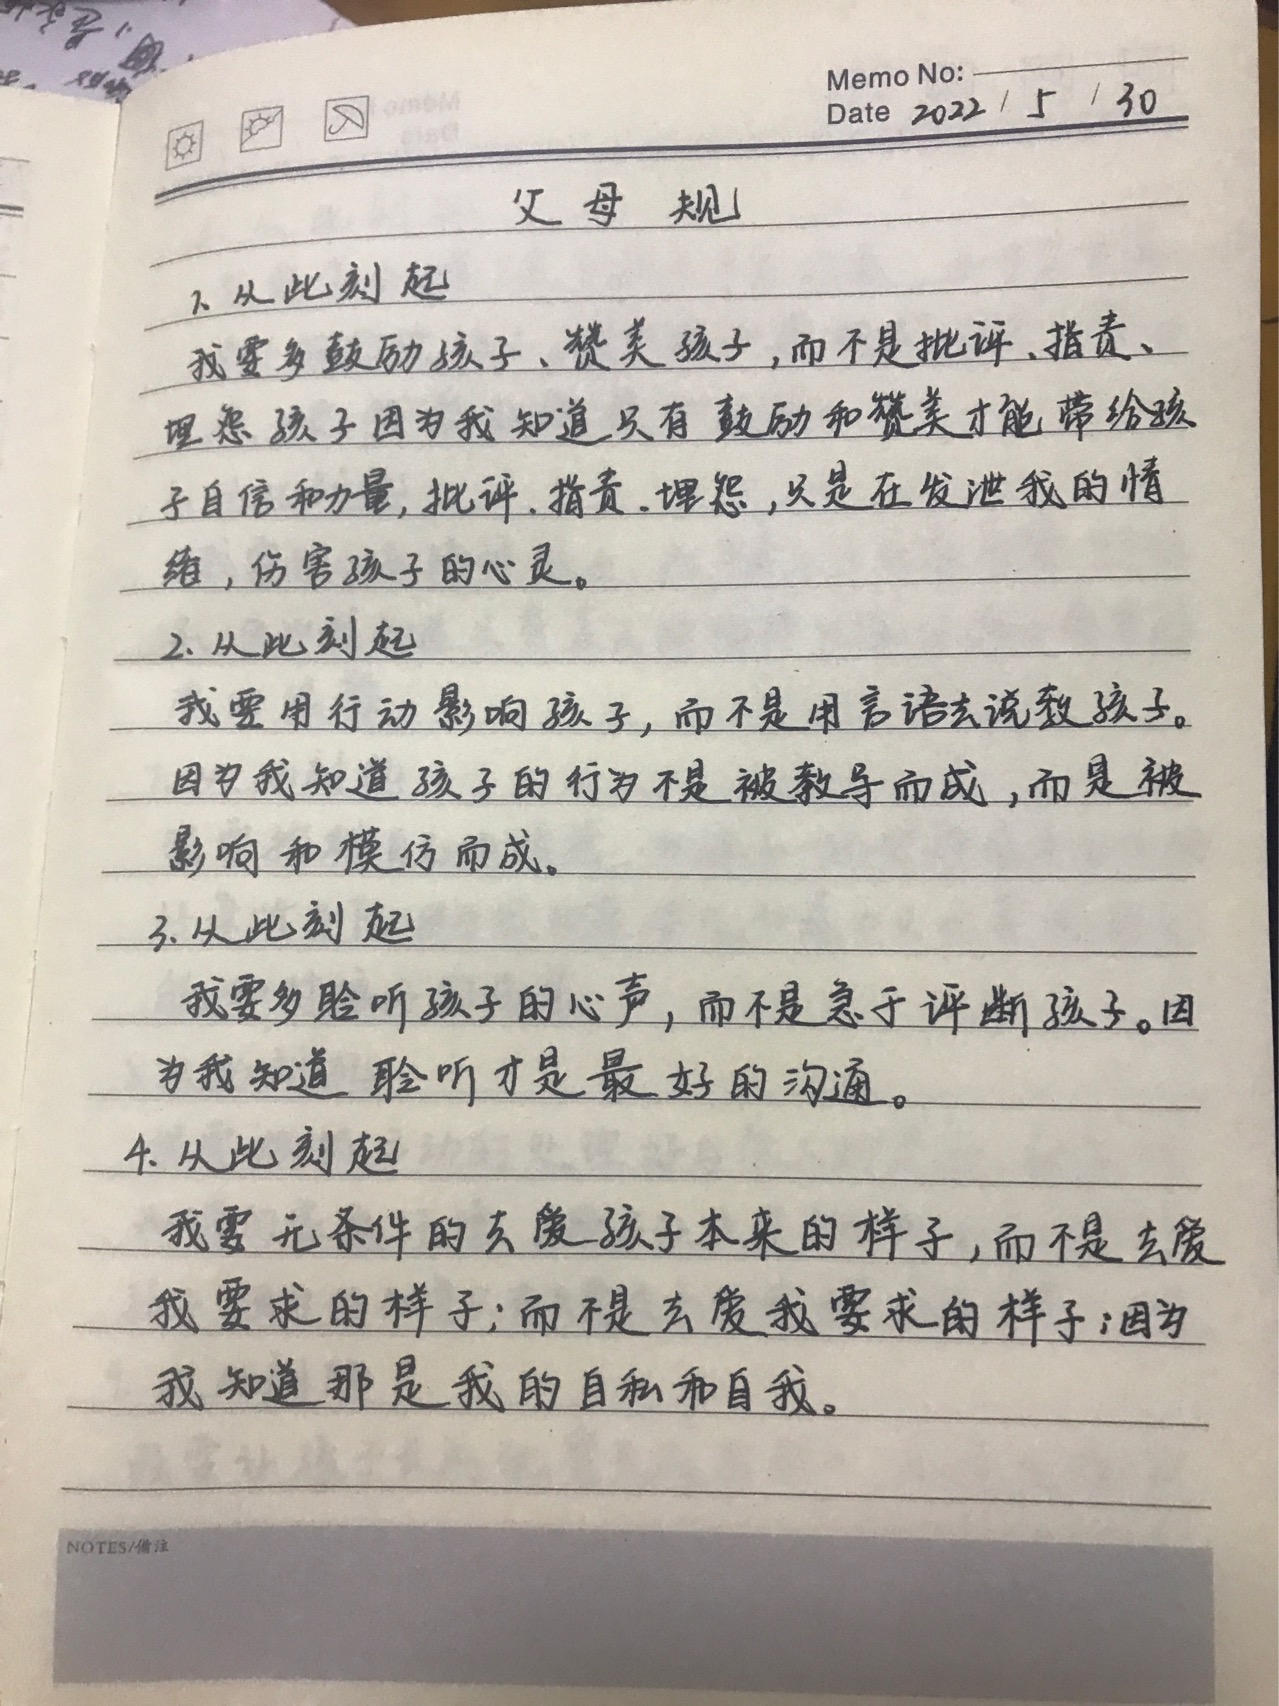 Memo No:
Date 2022 / 5 / 30
父母规
1、从此刻起
我要多鼓励孩子、赞美孩子,而不是批评、指责、
埋怨孩子因为我知道只有鼓励和赞美才能带给孩
子自信和力量,批评、指责、埋怨,只是在发泄我的情
绪,伤害孩子的心灵。
2、从此刻起
我要用行动影响孩子,而不是用言语去说教孩子。
因为我知道孩子的行为不是被教导而成,而是被
影响和模仿而成。
3、从此刻起
我要多聆听孩子的心声,而不是急于评断孩子。因
为我知道聆听才是最好的沟通。
4、从此刻起
我要无条件的去爱孩子本来的样子,而不是去爱
我要求的样子;而不是去爱我要求的样子;因为
我知道那是我的自私和自我。
NOTES/備注